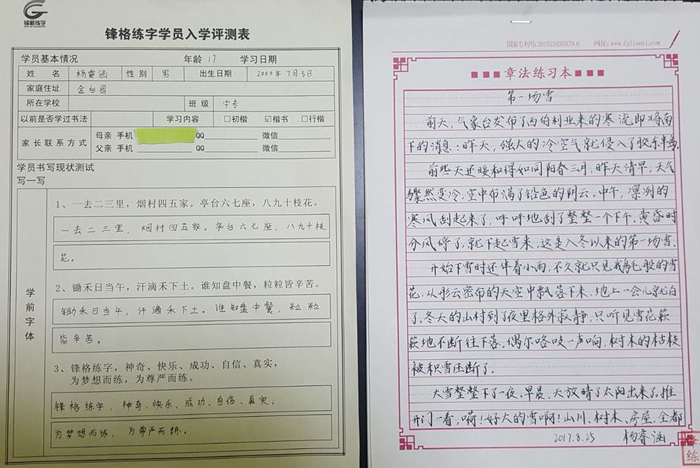 锋格练字
锋格练字学员入学评测表
学员基本情况 年龄 17 学习日期
姓名 杨睿涵 性别 男 出生日期 2000年7月5日
家庭住址
所在学校 班级 中专
以前是否学过书法 学习内容 □初楷 ☑楷书 □行楷
家长联系方式
母亲 手机 QQ 微信
父亲 手机 QQ 微信
学员书写现状测试
写一写
学前字体
1、一去二三里，烟村四五家。亭台六七座，八九十枝花。
一去二三里，烟村四五家。亭台六七座，八九十枝
花。
2、锄禾日当午，汗滴禾下土。谁知盘中餐，粒粒皆辛苦。
锄禾日当午，汗滴禾下土。谁知盘中餐，粒粒
皆辛苦。
3、锋格练字，神奇、快乐、成功、自信、真实，
为梦想而练，为尊严而练。
锋格练字，神奇、快乐、成功、自信、真实，
为梦想而练，为尊严而练。
章法练习本
第一场雪
前天，气象台发布了西伯利亚来的寒流即将南
下的消息；昨天，强大的冷空气就侵入了胶东半岛
前些天还暖和得如同阳春三月，昨天清早，天气
骤然变冷，空中布满了铅色的阴云。中午，凛冽的
寒风刮起来了，呼呼地刮了整整一个下午。黄昏时
分风停了，就下起雪来，这是入冬以来的第一场雪。
开始下雪时还伴着小雨，不久就只见鹅毛般的雪
花，从彤云密布的天空中飘落下来，地上一会儿就白
了，冬天的山村到了夜里格外寂静，只听见雪花簌
簌地不断往下落，偶尔咯吱一声响，树木的枯枝
被积雪压断了。
大雪整整下了一夜，早晨，天放晴了太阳出来了。推
开门一看，嗬！好大的雪啊！山川、树木、房屋，全都
2017.8.25 杨睿涵
练